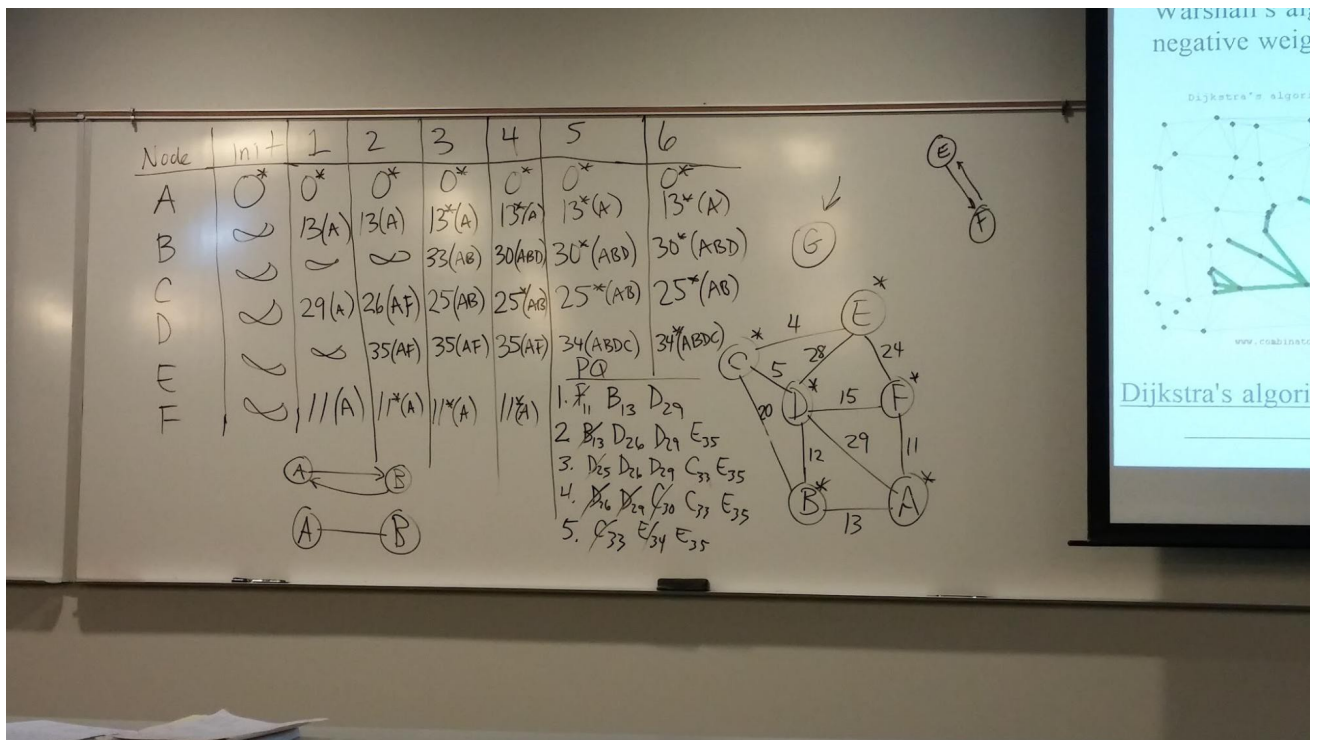 Node Init 1 2 3 4 5 6
A 0* 0* 0* 0* 0* 0* 0*
B ∞ 13(A) 13(A) 13*(A) 13*(A) 13*(A) 13*(A)
C ∞ ∞ ∞ 33(AB) 30(ABD) 30*(ABD) 30*(ABD)
D ∞ 29(A) 26(AF) 25(AB) 25*(AB) 25*(AB) 25*(AB)
E ∞ ∞ 35(AF) 35(AF) 35(AF) 34(ABDC) 34*(ABDC)
F ∞ 11(A) 11*(A) 11*(A) 11*(A)
PQ
1. F11 B13 D29
2 B13 D26 D29 E35
3. D25 D26 D29 C33 E35
4. D26 D29 C30 C33 E35
5. C33 E34 E35
A B
A B
E
F
G
E *
4
C *
28
24
5
D *
15
F *
20
29
11
12
B *
13
A *
Warshall's
negative
Dijkstra's
Dijkstra's